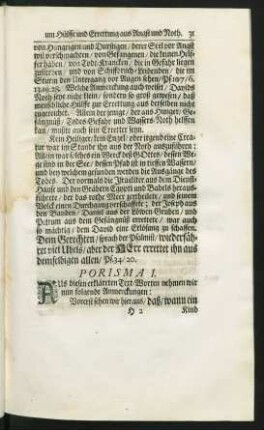 um Hülffe und Errettung aus Angst und Noth. 31
von Hungrigen und Durstigen, derer Seel vor Angst
wil verschmachten, von Gefangenen, die keinen Helf-
fer haben, von Todt-Krancken, die in Gefahr liegen
zusterben, und von Schifbruch-Leidenden, die im
Sturm den Untergang vor Augen sehen, Ps. 107/6.
13.19.28. Welche Anmerckung auch weiset, Davids
Noth sey nicht klein, sondern so groß gewesen, daß
menschliche Hülffe zur Errettung aus derselben nicht
zugereichet. Allein der jenige, der aus Hunger, Ge-
fängnuß, Todes-Gefahr und Wassers-Noth helffen
kan, muste auch sein Erretter seyn.
Kein Heiliger, kein Engel, oder irgend eine Crea-
tur war im Stande ihn aus der Noth auszuführen;
Allein war solches ein Werck des HErrn, dessen We-
ge sind in der See, dessen Pfad ist in tieffen Wassern,
und bey welchem gefunden werden die Ausgänge des
Todes. Der vormals die Israeliter aus dem Dienst-
Hause und den Gräbern Egypti und Babels heraus-
führete, der das rothe Meer zertheilete, und seinem
Volck einen Durchgang verschaffete; der Joseph aus
den Banden, Daniel aus der Löwen Gruben, und
Petrum aus dem Gefängnuß errettet, war auch
so mächtig, dem David eine Erlösung zu schaffen.
Dem Gerechten, sprach der Psalmist, wiederfäh-
ret viel Übels, aber der HErr errettet ihn aus
demselbigen allen, Ps. 34/20.
PORISMA I.
AUs diesen erklärten Text-Worten nehmen wir
nun folgende Anmerckungen:
Vorerst sehen wir hier aus, daß, wann ein
H 2 Kind